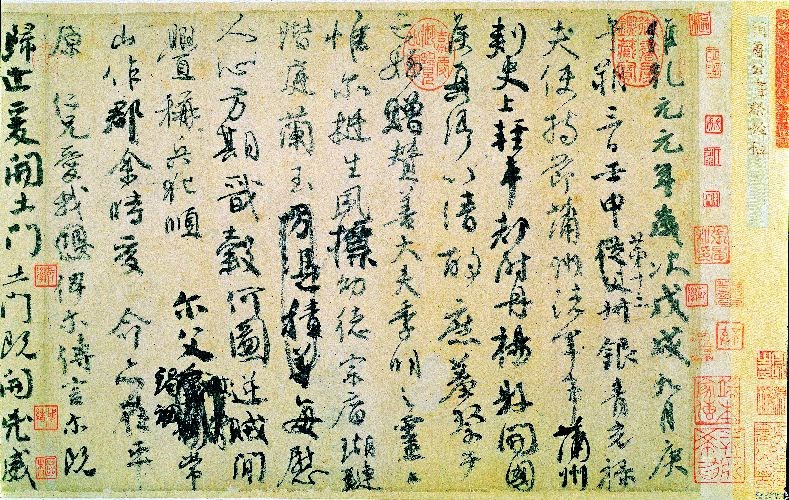 維乾元元年歲次戊戌九月庚
午朔三日壬申第十三從父叔銀青光祿
夫使持節蒲州諸軍事蒲州
刺史上輕車都尉丹楊縣開國
侯真卿以清酌庶羞祭于
亡姪贈贊善大夫季明之靈曰
惟尔挺生夙標幼德宗廟瑚璉
階庭蘭玉方憑積善每慰
人心方期戩穀何圖逆賊閒
釁稱兵犯順尔父竭誠常
山作郡余時受命亦在平
原仁兄愛我俾尔傳言尔既
歸止爰開土門土門既開兇威